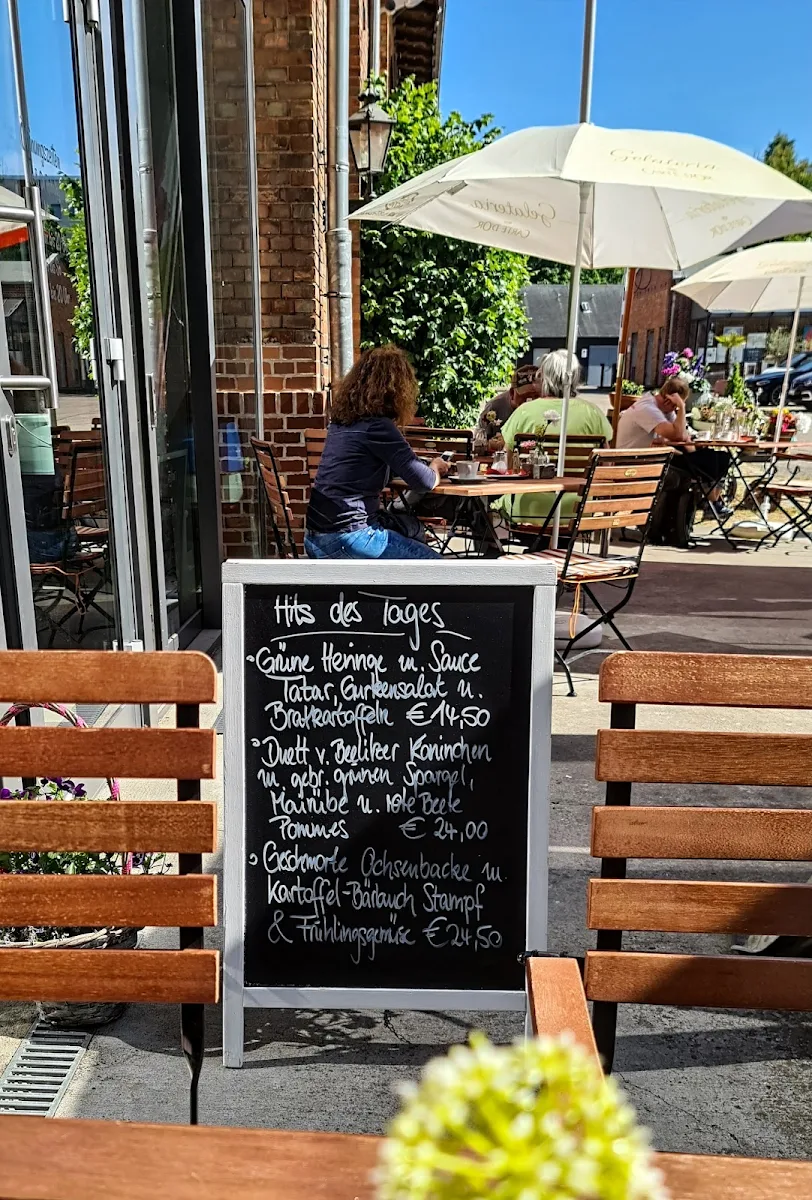 Gelateria
CARTE D'OR
Gelateria
CARTE D'OR
Hits des Tages
°Grüne Heringe m. Sauce
Tatar, Gurkensalat u.
Bratkartoffeln €14,50
°Duett v. Beelitzer Kaninchen
m. gebr. grünen Spargel,
Mairübe u. rote Beete
Pommes € 24,00
°Geschmorte Ochsenbacke m.
Kartoffel-Bärlauch Stampf
& Frühlingsgemüse €24,50